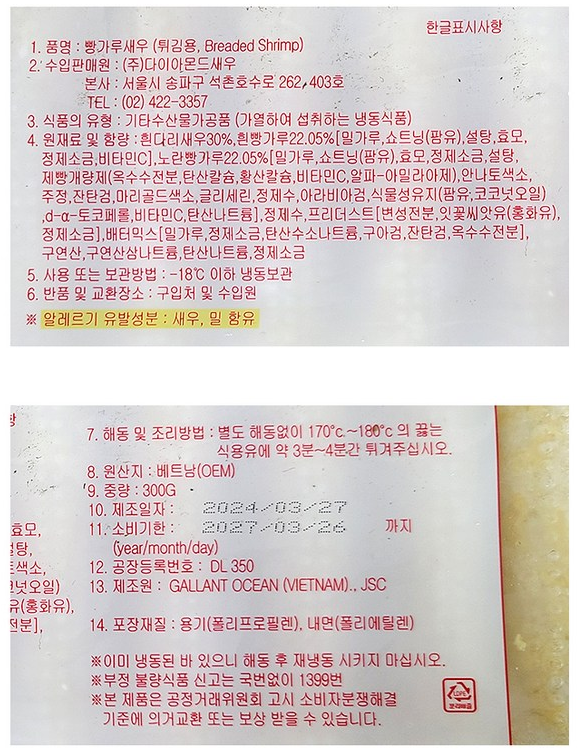 한글표시사항
1. 품명 : 빵가루새우 (튀김용, Breaded Shrimp)
2. 수입판매원 : (주)다이아몬드새우
본사 : 서울시 송파구 석촌호수로 262, 403호
TEL : (02) 422-3357
3. 식품의 유형 : 기타수산물가공품 (가열하여 섭취하는 냉동식품)
4. 원재료 및 함량 : 흰다리새우30%,흰빵가루22.05%[밀가루,쇼트닝(팜유),설탕,효모,
정제소금,비타민C],노란빵가루22.05%[밀가루,쇼트닝(팜유),효모,정제소금,설탕,
제빵개량제(옥수수전분,탄산칼슘,황산칼슘,비타민C,알파-아밀라아제),안나토색소,
주정,잔탄검,마리골드색소,글리세린,정제수,아라비아검,식물성유지(팜유,코코넛오일)
,d-α-토코페롤,비타민C,탄산나트륨],정제수,프리더스트[변성전분,잇꽃씨앗유(홍화유),
정제소금],배터믹스[밀가루,정제소금,탄산수소나트륨,구아검,잔탄검,옥수수전분],
구연산,구연산삼나트륨,탄산나트륨,정제소금
5. 사용 또는 보관방법 : -18℃ 이하 냉동보관
6. 반품 및 교환장소 : 구입처 및 수입원
※ 알레르기 유발성분 : 새우, 밀 함유
항
7. 해동 및 조리방법 : 별도 해동없이 170℃~180℃ 의 끓는
식용유에 약 3분~4분간 튀겨주십시오.
8. 원산지 : 베트남(OEM)
9. 중량 : 300G
10. 제조일자 : 2024/03/27
11. 소비기한 : 2027/03/26 까지
(year/month/day)
12. 공장등록번호 : DL 350
13. 제조원 : GALLANT OCEAN (VIETNAM)., JSC
14. 포장재질 : 용기(폴리프로필렌), 내면(폴리에틸렌)
효모,
설탕,
색소,
넛오일)
유(홍화유),
전분],
※이미 냉동된 바 있으니 해동 후 재냉동 시키지 마십시오.
※부정 불량식품 신고는 국번없이 1399번
※본 제품은 공정거래위원회 고시 소비자분쟁해결
기준에 의거교환 또는 보상 받을 수 있습니다.
LDPE